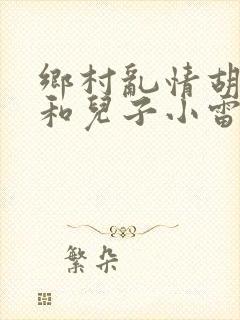 鄉村亂情胡
和兒子小雷
繁朵